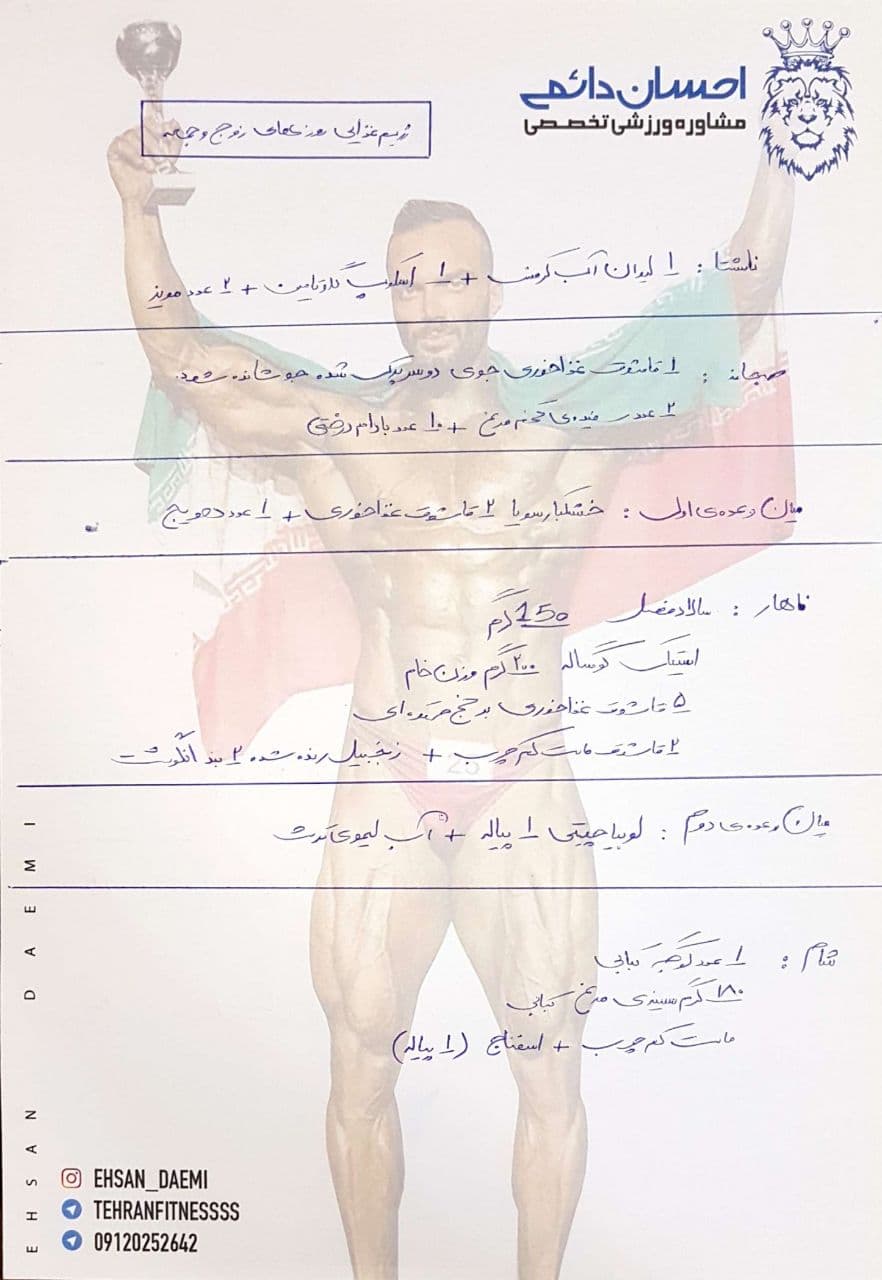 احسان دائمی
مشاوره ورزشی تخصصی
رژیم غذایی روزهای زوج و جمعه
ناشتا : ۱ لیوان آب کرفس + ۱ اسکوپ گلوتامین + ۲ عدد مویز
صبحانه : ۱ قاشق غذاخوری جوی دوسر پرک شده جوشانده شود.
۲ عدد سفیده‌ی تخم مرغ + ۱۰ عدد بادام درختی
میان وعده‌ی اول : خشکبار سویا ۲ قاشق غذاخوری + ۱ عدد هویج
ناهار : سالاد مفصل 150 گرم
استیک گوساله ۲۰۰ گرم وزن خام
۵ قاشق غذاخوری برنج قهوه‌ای
۲ قاشق ماست کم چرب + زنجبیل رنده شده ۲ بند انگشت
میان وعده‌ی دوم : لوبیا چیتی ۱ پیاله + آب لیموی ترش
شام : ۱ عدد گوجه کبابی
۱۸۰ گرم سینه‌ی مرغ کبابی
ماست کم چرب + اسفناج (۱ پیاله)
EHSAN DAEMI
EHSAN_DAEMI
TEHRANFITNESSSS
09120252642